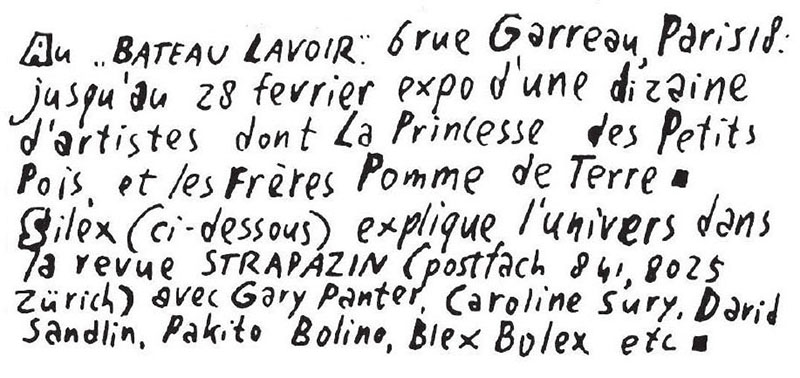 Au „BATEAU LAVOIR" 6 rue Garreau, Paris 18:
jusqu'au 28 fevrier expo d'une dizaine
d'artistes dont La Princesse des Petits
Pois, et les Frères Pomme de Terre ■
Silex (ci-dessous) explique l'univers dans
la revue STRAPAZIN (postfach 841, 8025
Zürich) avec Gary Panter, Caroline Sury, David
Sandlin, Pakito Bolino, Blex Bolex etc ■